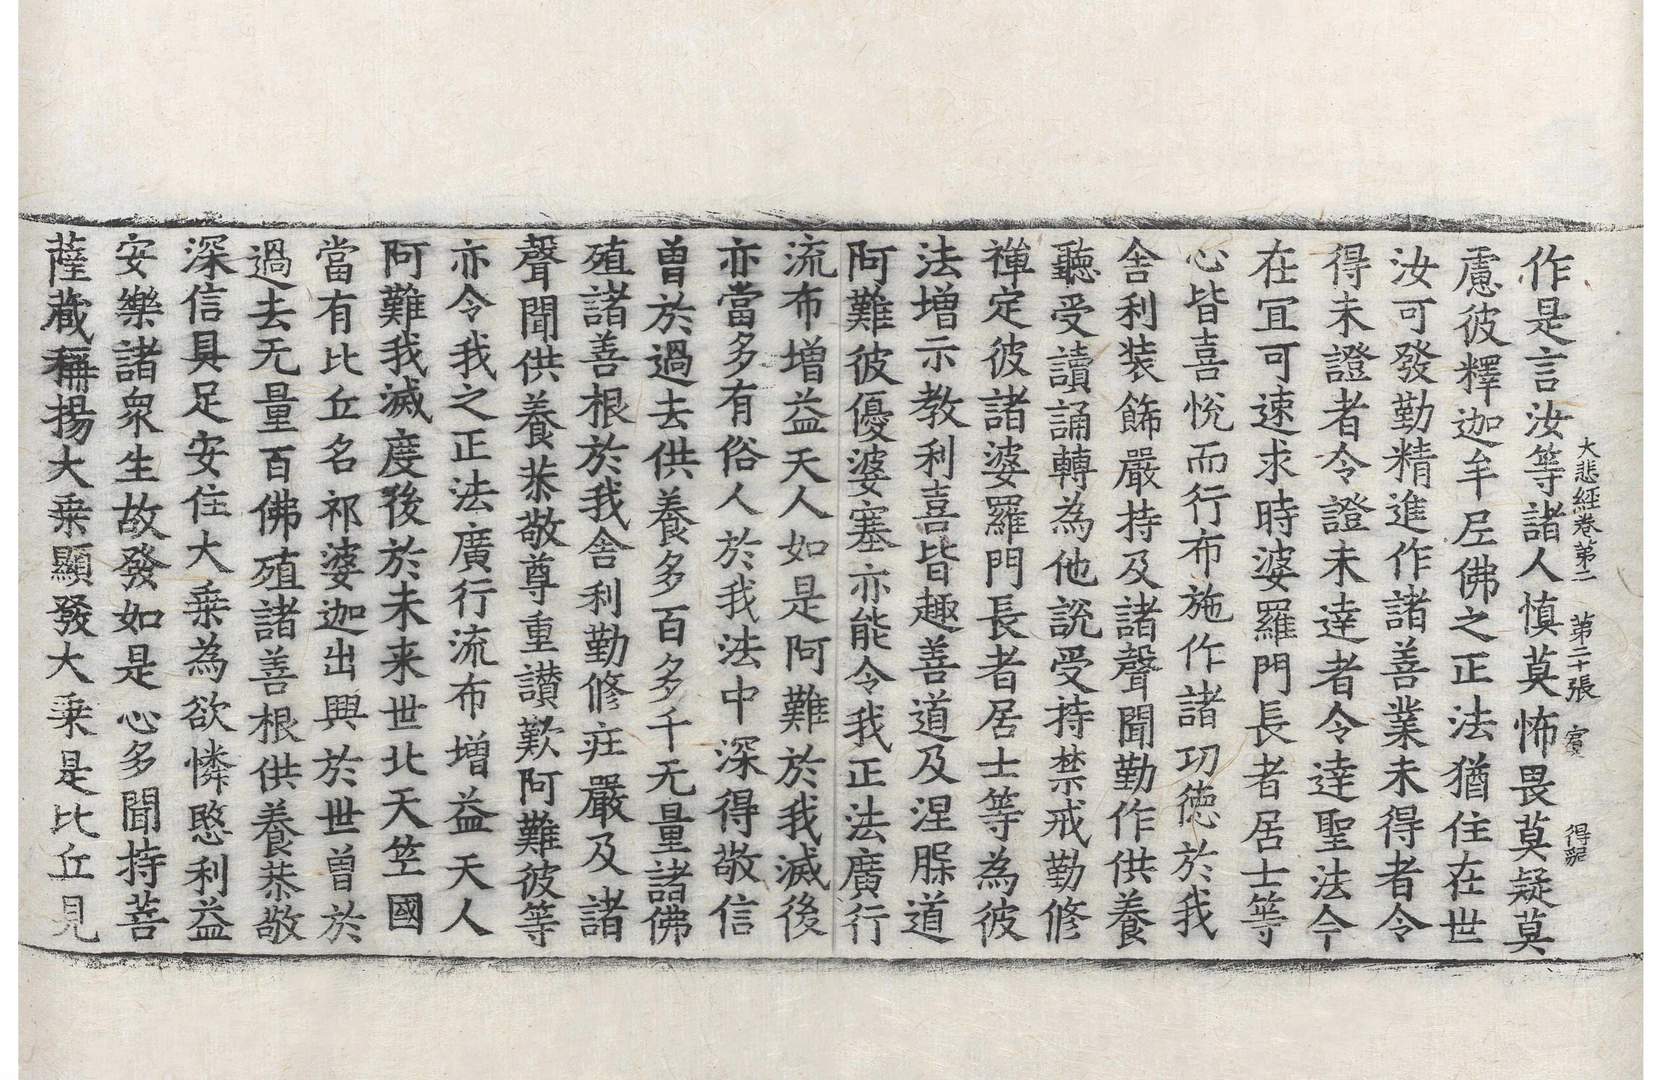 大悲經卷第二 第二十張 賓 得記
作是言汝等諸人慎莫怖畏莫疑莫
慮彼釋迦牟尼佛之正法猶住在世
汝可發勤精進作諸善業未得者令
得未證者令證未達者令達聖法今
在宜可速求時婆羅門長者居士等
心皆喜悅而行布施作諸功德於我
舍利裝飾嚴持及諸聲聞勤作供養
聽受讀誦轉為他說受持禁戒勤修
禪定彼諸婆羅門長者居士等為彼
法增示教利喜皆趣善道及涅槃道
阿難彼優婆塞亦能令我正法廣行
流布增益天人如是阿難於我滅後
亦當多有俗人於我法中深得敬信
曾於過去供養多百多千无量諸佛
殖諸善根於我舍利勤修莊嚴及諸
聲聞供養恭敬尊重讚歎阿難彼等
亦令我之正法廣行流布增益天人
阿難我滅度後於未来世北天竺國
當有比丘名祁婆迦出興於世曾於
過去无量百佛殖諸善根供養恭敬
深信具足安住大乗為欲憐愍利益
安樂諸衆生故發如是心多聞持菩
薩藏稱揚大乗顯發大乗是比丘見